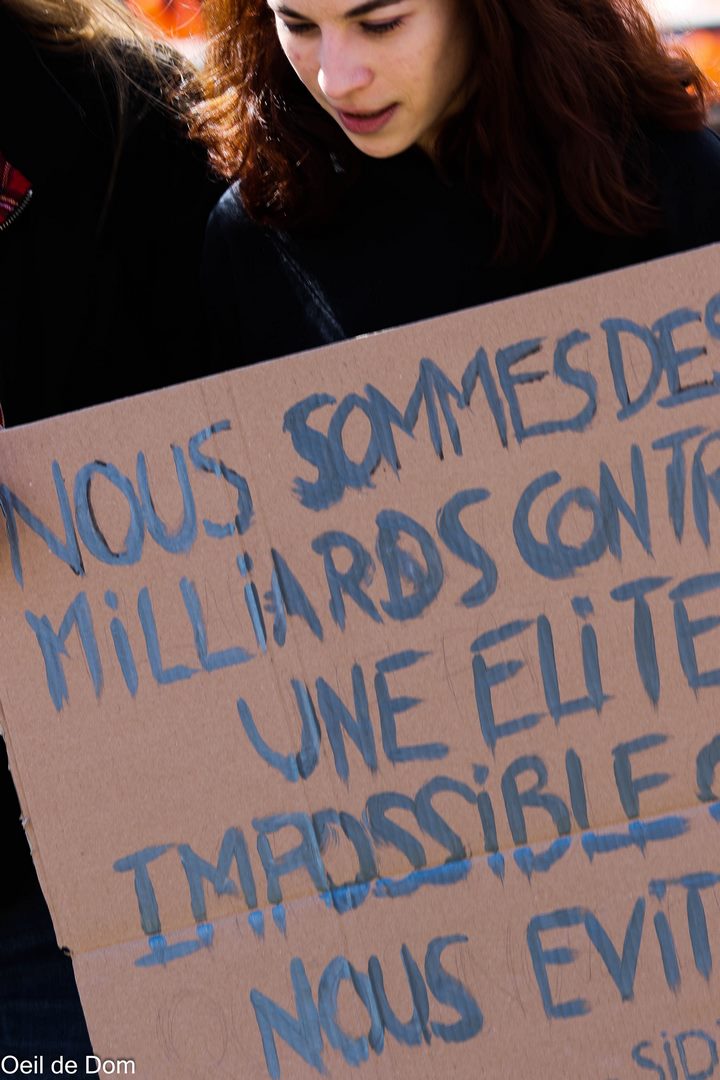 NOUS SOMMES DES
MiLLiARDS CONTR
UNE ELiTE
IMPOSSiBLE
NOUS EViT
SiD
Oeil de Dom